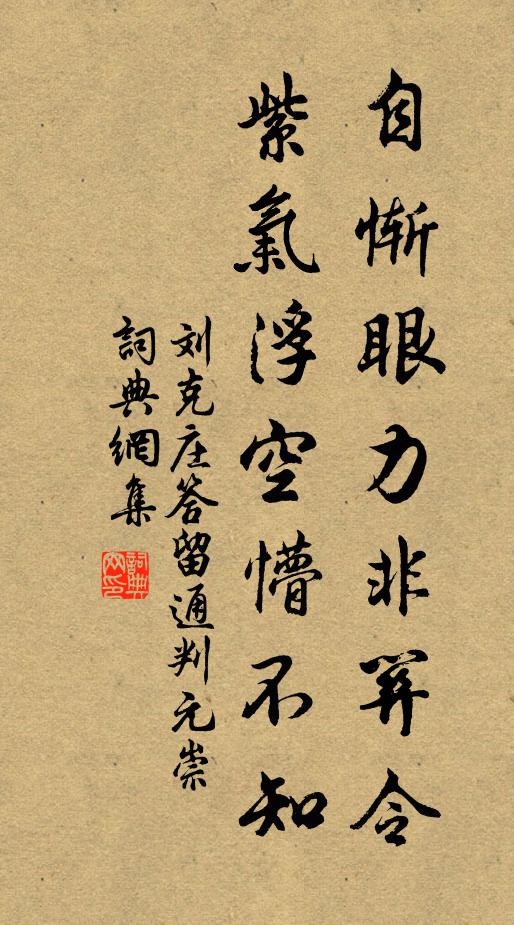 自惭眼力非關令
紫氣浮空懵不知
刘克庄答留通判元崇
詞典網集
詞典网印